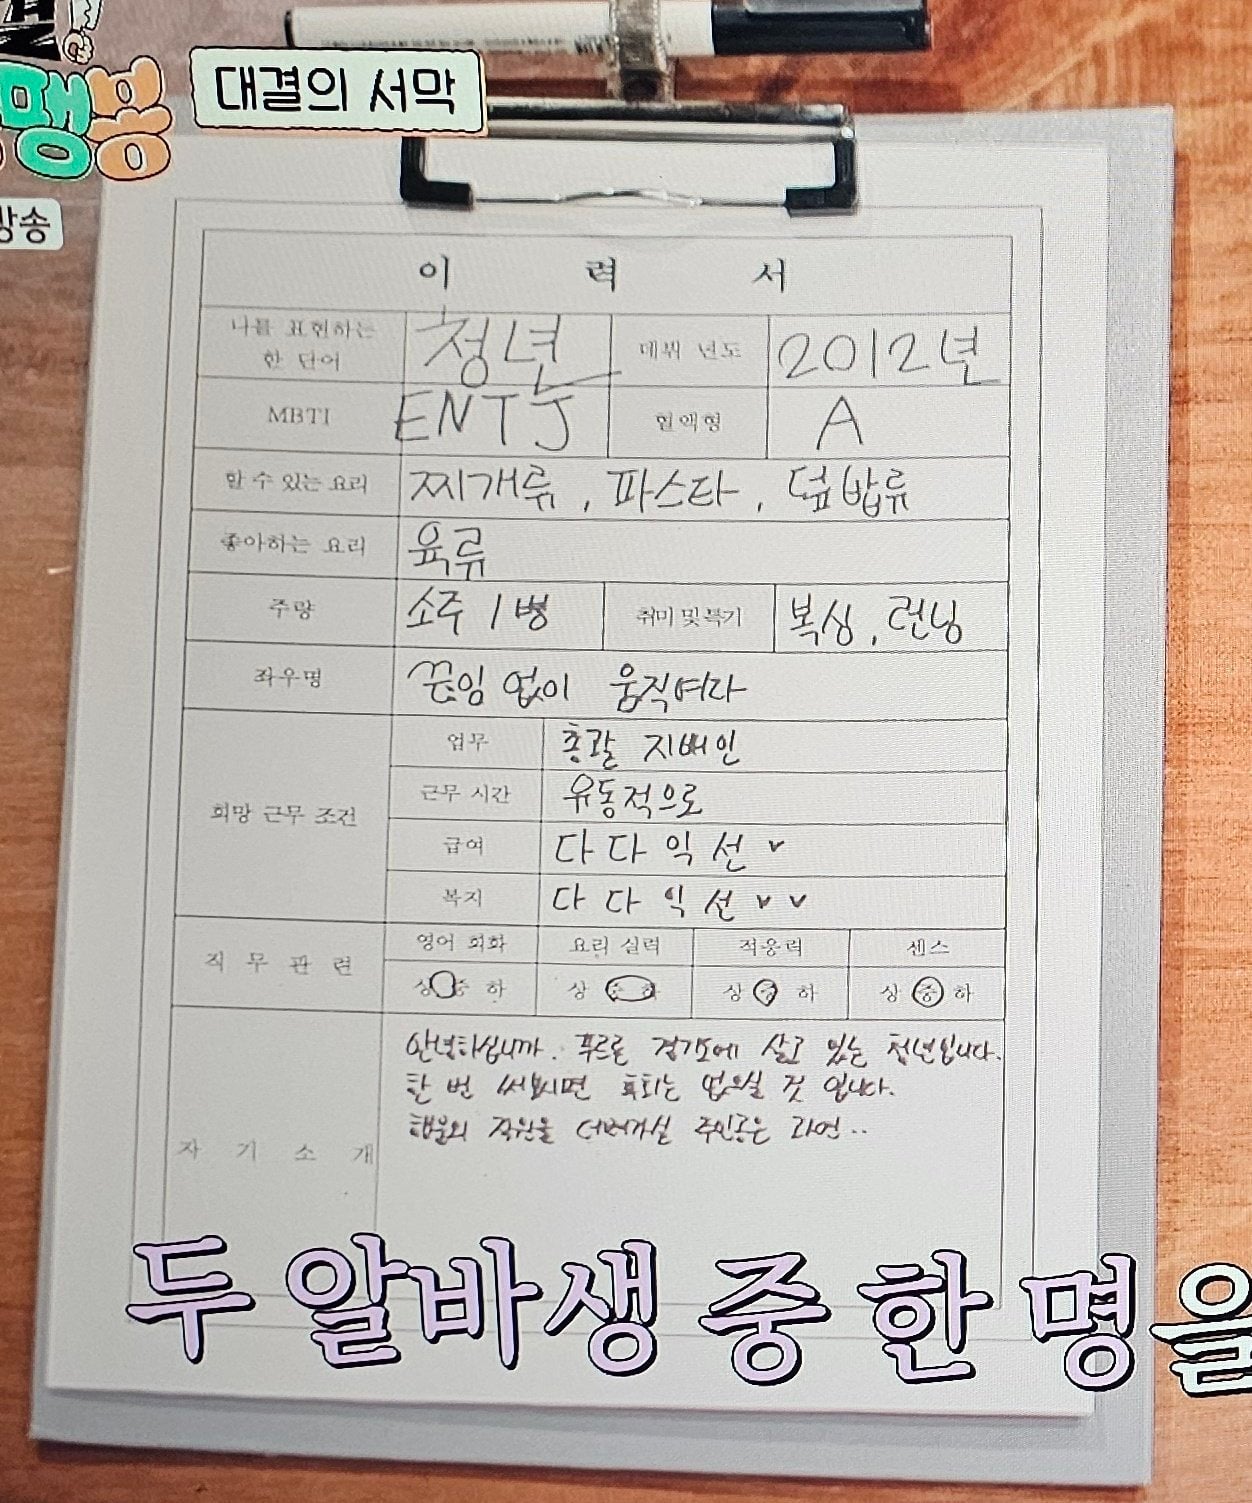 대결의 서막
방송
이 력 서
나를 표현하는 한 단어 청년 데뷔 년도 2012년
MBTI ENTJ 혈액형 A
할 수 있는 요리 찌개류, 파스타, 덮밥류
좋아하는 요리 육류
주량 소주 1병 취미 및 특기 복싱, 런닝
좌우명 끈임 없이 움직여라
희망 근무 조건
업무 총괄 지배인
근무 시간 유동적으로
급여 다 다 익 선
복지 다 다 익 선
직 무 관 련
영어 회화 요리 실력 적응력 센스
상 중 하 상 중 하 상 중 하 상 중 하
자 기 소 개
안녕하십니까. 푸르른 경기도에 살고 있는 청년입니다.
한 번 써보시면 후회는 없으실 것 입니다.
행운의 직원을 데려가실 주인공은 과연..
두 알바생 중 한 명을